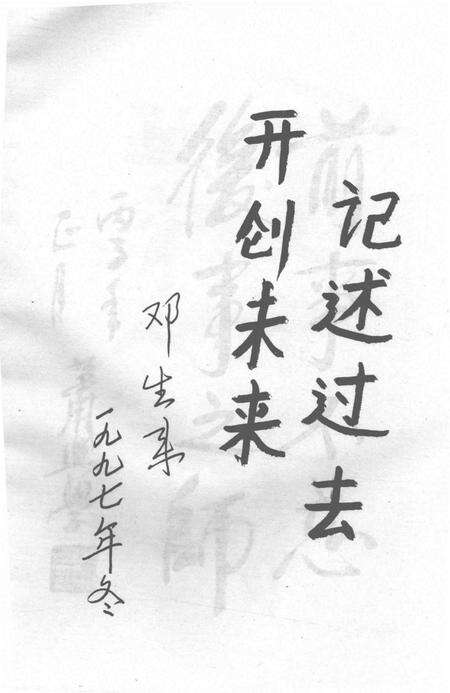 记述过去
开创未来
邓生
一九九七年冬